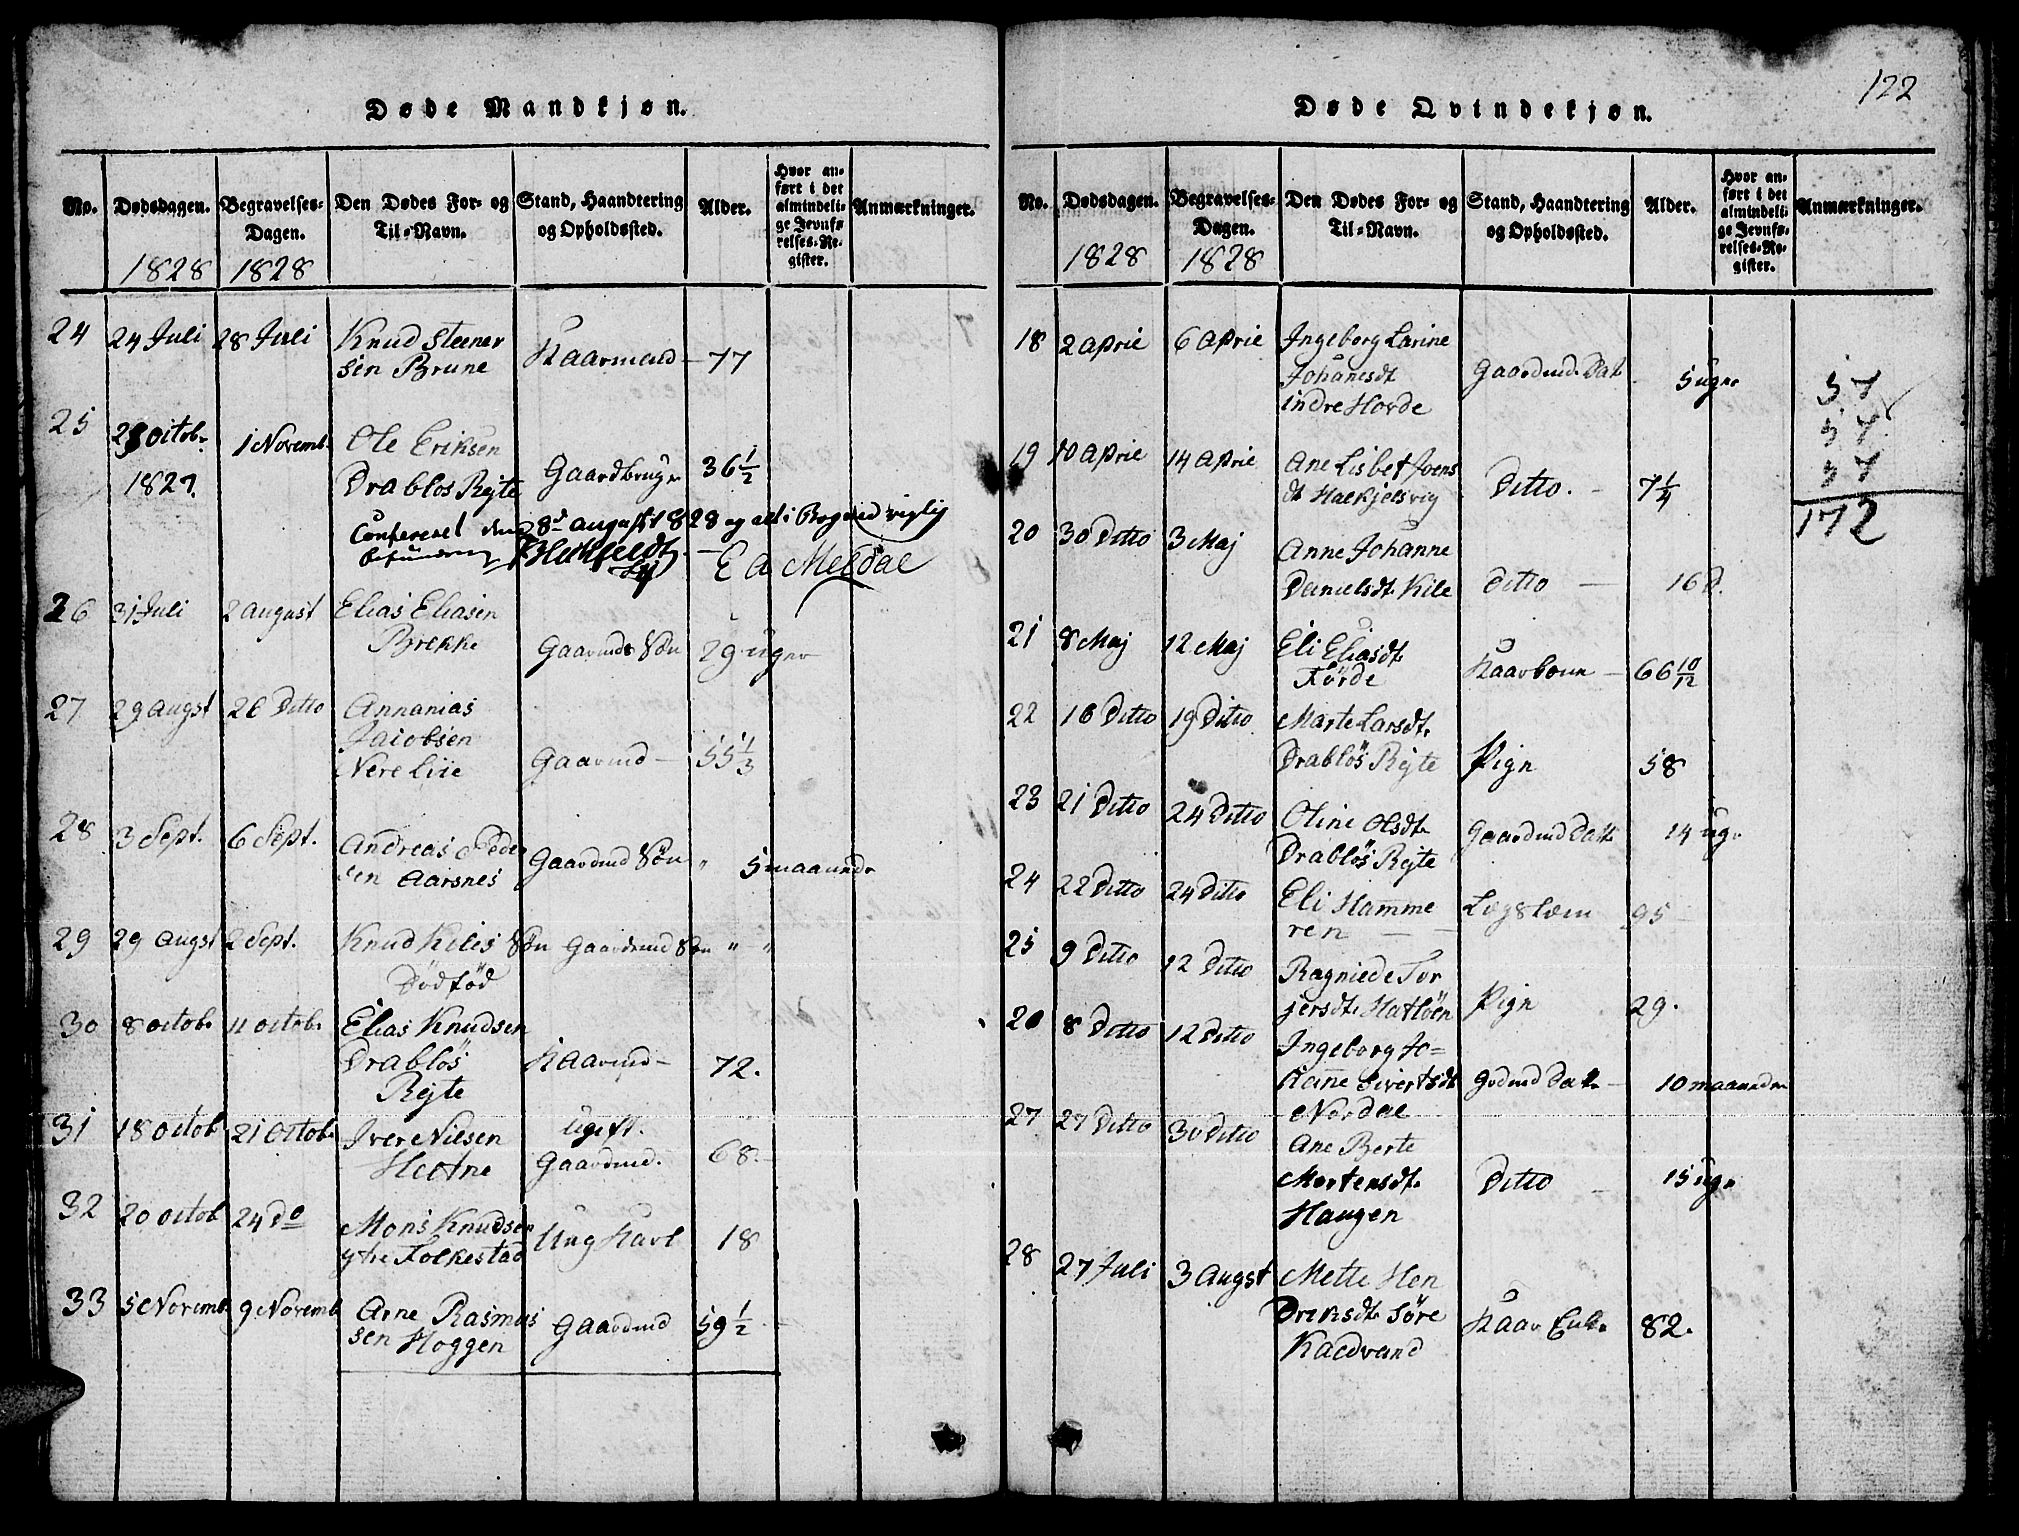 122
Døde Mandkjøn.
No. Dødsdagen. Begravelses-Dagen. Den Dødes For- og Til-Navn. Stand, Haandtering og Opholdssted. Alder. Hvor anført i det almindelige Jevnførelses-Register. Anmærkninger.
1828 1828
24 24 Juli 28 Juli Knud Steener
sen Brune Kaarmand - 77
25 Octob. 1 Novemb. Ole Eriksen
1827. Drabløs Rejte Gaardbruger 36 1/2
Confereret den 8de august 1828 og alt i Bogen rigtig
befunden E A Meldal
26 31 Juli 2 august Elias Eliasen
Brekke Gaarmds Søn 29 uger
27 29 Augst 26 Ditto Annanias
Jacobsen
Nere Liie Gaarmd - 55 1/3
28 3 Sept. 6 Sept. Andreas Peder
sen Aarsnes Gaardmd Søn " 5 maander
29 29 Augst 2 Sept. Knud Kiles Søn Gaardmd Søn " "
Dödföd
30 8 octob. 11 octob. Elias Knudsen
Drablös
Rejte Kaarmd - 72.
31 18 octob 21 Octob. Iver Nilsen ugift.
Hootne Gaardmd. 68.
32 20 octob 24 Do Mons Knudsen
ytre Folkestad Ung Karl 18
33 5 Novemb. 9 Novemb. Arne Rasmus
sen Hoggen Gaardmd 59 1/2
Døde Qvindekjøn.
No. Dødsdagen. Begravelses-Dagen. Den Dødes For- og Til-Navn. Stand, Haandtering og Opholdssted. Alder. Hvor anført i det almindelige Jevnførelses-Register. Anmærkninger.
1828 1828
18 2 Aprie 6 Aprie Ingeborg Larine
Johanesdt
indre Horde Gaardmd. Dat 5 uger
57
57
57
172
19 10 Aprie 14 Aprie Ane Lisbet Joens
dt Halkjelsvig Ditto. - 7 1/4
20 30 Ditto 3 Maj Anne Johanne
Danielsdt. Kile Ditto - 16 D.
21 8 Maj 12 Maj Eli Eliasdt.
Förde Kaarkone - 66 10/12
22 16 Ditto 19 Ditto Marte Larsdt.
Drablös Rejte Pige 58
23 21 Ditto 24 Ditto Oline Olsdt.
Drablös Rejte Gaardmd Datt 14 ug.
24 22 Ditto 24 Ditto Eli Hamme
ren Lægslem 95
25 9 Ditto 12 Ditto Ragniede Tor
jersdt. Hatlöen Pige 29.
26 8 Ditto 12 Ditto Ingeborg Jo=
hanne Sivertsdt Godmd Dat. - 10 maander
Nordal
27 27 Ditto 30 Ditto Ane Berte
Mortensdt. Ditto - 15 ugr
Haugen
28 27 Juli 3 Augst Mette Hen
Driksdt. Söre Kaar Enk. 82.
Kaldvand